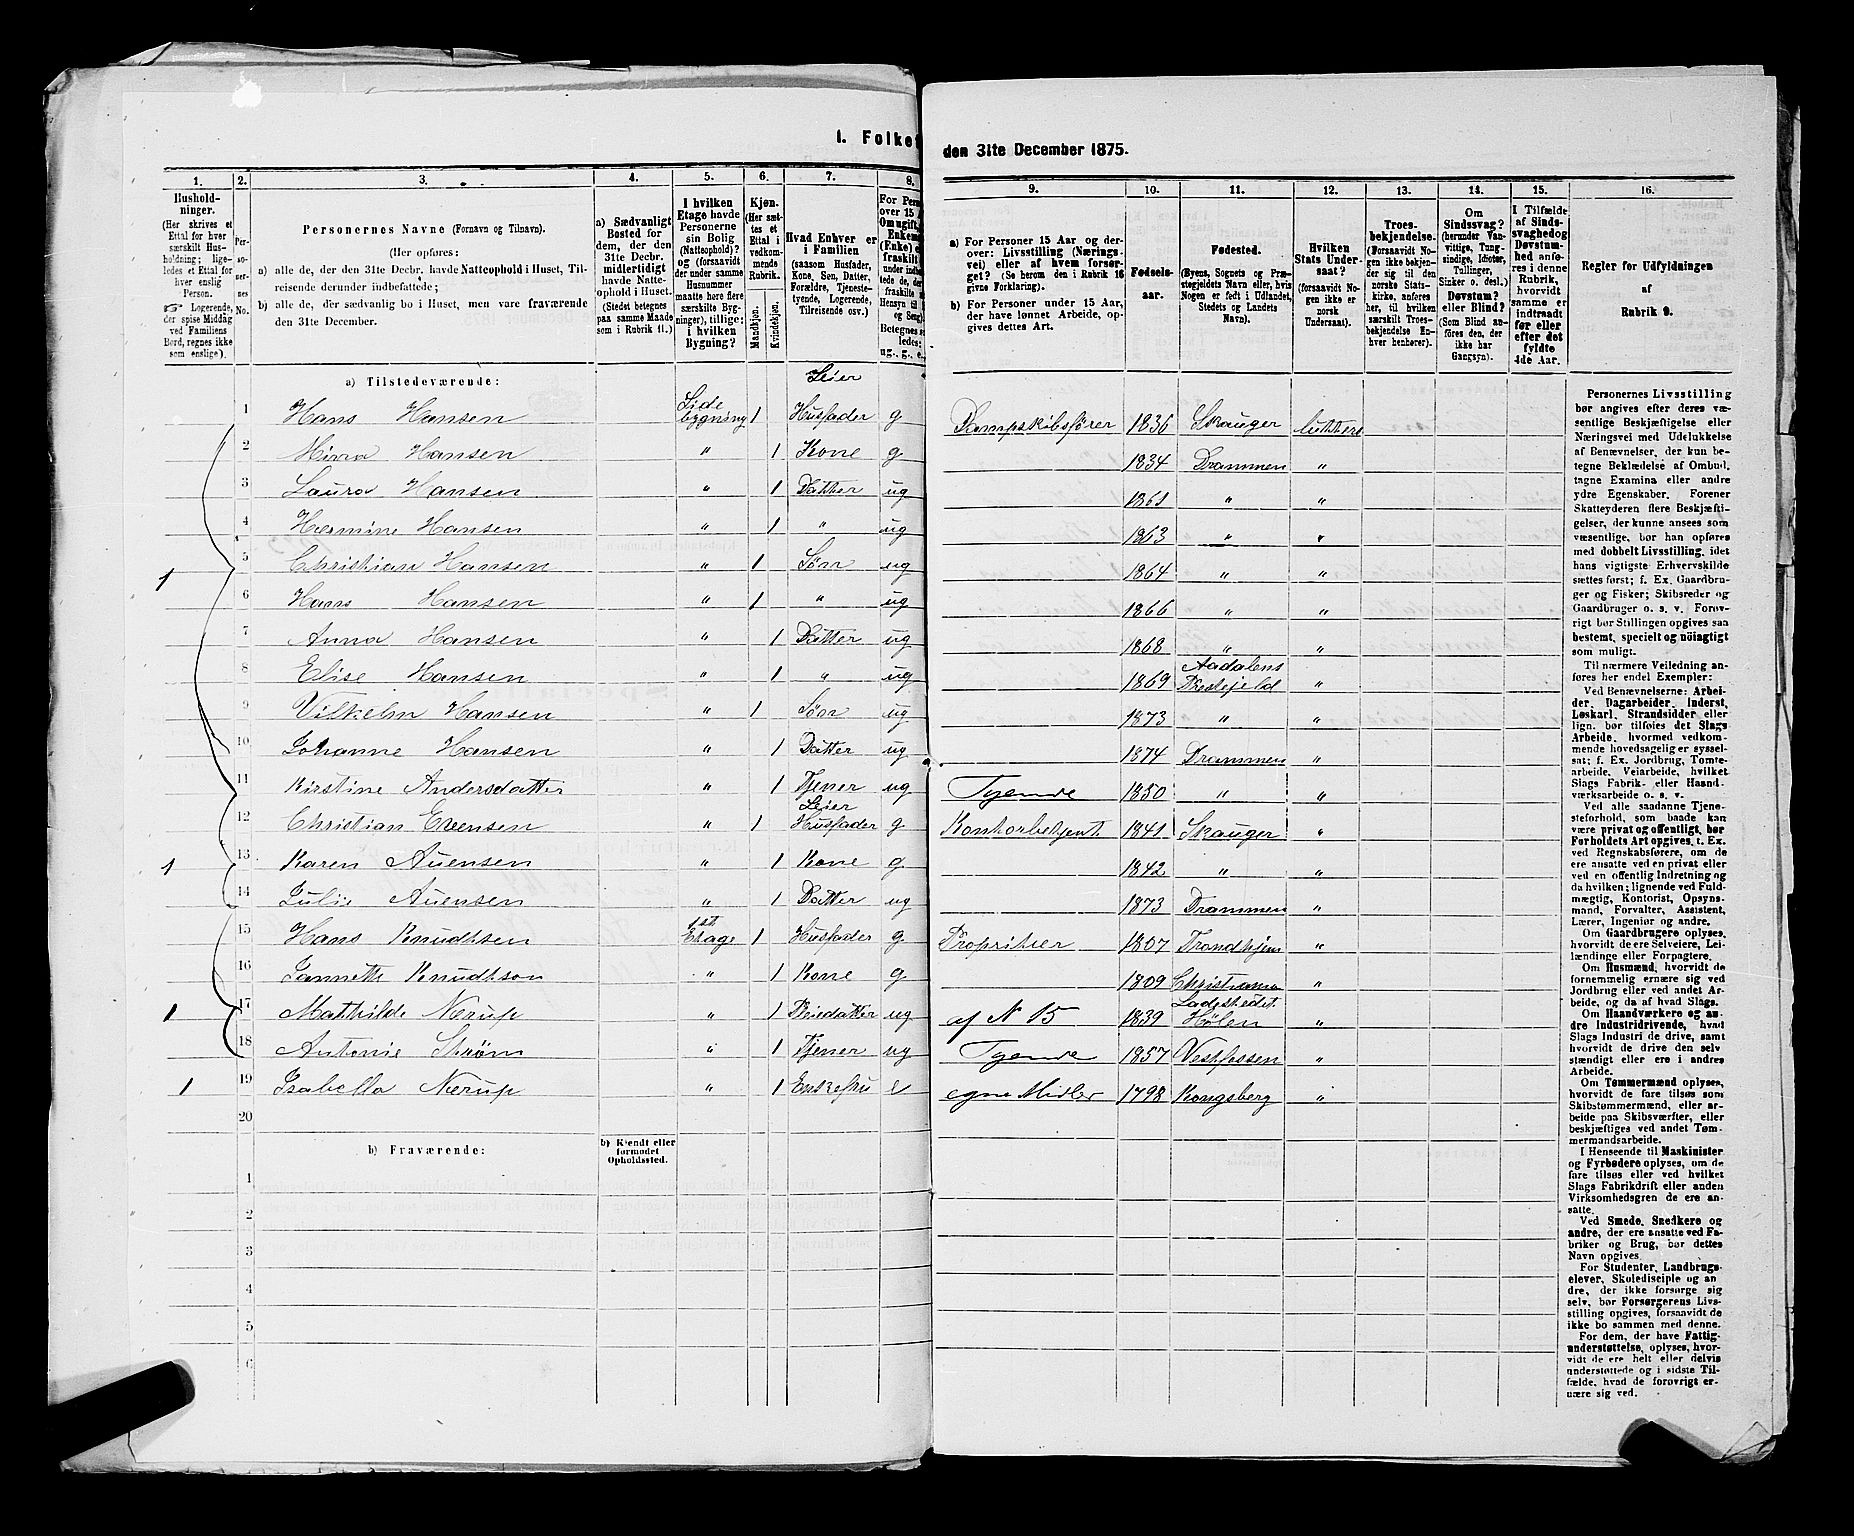 I. Folket
den 31te December 1875.
1. 2. 3. 4. 5. 6. 7. 8.
9. 10. 11. 12. 13. 14. 15. 16.
Hushold-
ninger.
(Her skrives et
Ettal for hver
særskilt Hus-
holdning; lige-
ledes et Ettal for
hver enslig
Person.
Logerende,
der spise Middag
ved Familiens
Bord, regnes ikke
som enslige).
Per-
so-
ner-
nes
No.
Personernes Navne (Fornavn og Tilnavn).
(Her opføres:
a) alle de, der den 31te Decbr. havde Natteophold i Huset, Til-
reisende derunder indbefattede;
b) alle de, der sædvanlig bo i Huset, men vare fraværende
den 31te December.
a) Sædvanligt
Bosted for
dem, der den
31te Decbr.
midlertidigt
havde Natte-
ophold i Huset.
(Stedet betegnes
paa samme Maade
som i Rubrik 11.)
I hvilken
Etage havde
Personerne
sin Bolig
(Natteophold)?
og (forsaavidt
der under samme
Husnummer
maatte høre flere
særskilte Byg-
ninger), tillige:
i hvilken
Bygning?
Kjøn.
(Her sæt-
tes et
Ettal i
vedkom-
mende
Rubrik.
Mandkjøn.
Kvindekjøn.
Hvad Enhver er
i Familien
(saasom Husfader,
Kone, Søn, Datter,
Forældre, Tjeneste-
tyende, Logerende,
Tilreisende osv.)
For Pers
over 15 A
Om ugift,
Enkema
(Enke) e
fraskilt
ug., g., e.,
a) For Personer 15 Aar og der-
over: Livsstilling (Nærings-
vei) eller af hvem forsør-
get? (Se herom den i Rubrik 16
givne Forklaring).
b) For Personer under 15 Aar,
der have lønnet Arbeide, op-
gives dettes Art.
Fødsels-
aar.
Fødested.
(Byens, Sognets og Præ-
stegjeldets Navn eller, hvis
Nogen er født i Udlandet,
Stedets og Landets
Navn).
Hvilken
Stats Under-
saat?
(forsaavidt No-
gen ikke er
norsk
Undersaat).
Troes-
bekjendelse.
(Forsaavidt No-
gen ikke bekjen-
der sig til den
norske Stats-
kirke, anføres
her, til hvilken
særskilt Troes-
bekjendelse En-
hver henhører).
Om
Sindssvag?
(herunder Van-
vittige, Tung-
sindige, Idioter,
Tullinger,
Sinker o. desl.)
Døvstum?
eller Blind?
(Som Blind an-
føres den, der
ikke har
Gangsyn).
I Tilfælde
af Sinds-
svaghed og
Døvstum-
hed anfø-
res i denne
Rubrik,
hvorvidt
samme er
indtraadt
før eller
efter det
fyldte
4de Aar.
Regler for Udfyldningen
af
Rubrik 9.
a) Tilstedeværende:
1 Hans Hansen Side bygning 1 Leier Husfader g Dampskibsfører 1836 Skauger luthers
2 Mina Hansen " 1 Kone g 1834 Drammen "
3 Laura Hansen " 1 Datter ug 1861 " "
4 Hermine Hansen " 1 " ug 1863 " "
1 5 Christian Hansen " 1 Søn ug 1864 " "
6 Hans Hansen " 1 " ug 1866 " "
7 Anna Hansen " 1 Datter ug 1868 " "
8 Elise Hansen " 1 " ug 1869 Aadalens Prestejeld "
9 Vilhelm Hansen " 1 Søn ug 1873 " "
10 Johanne Hansen " 1 Datter ug 1874 Drammen "
11 Kirstine Andersdatter " 1 Tjener ug Tyende 1850 " "
12 Christian Evensen " 1 Leier Husfader g Kontorbetjent 1841 Skauger "
1 13 Karen Auensen " 1 Kone g 1842 " "
14 Julie Auensen " 1 Datter ug 1873 Drammen "
15 Hans Knudtsen 1st Etage 1 Husfader g Propritær 1807 Trondhjem "
16 Jannette Knudtson " 1 Kone g 1809 Christiania "
1 17 Mathilde Nerup " 1 Pleiedatter ug af N 15 1839 Ladestedet Hølen "
18 Antonie Strøm " 1 Tjener ug Tyende 1857 Vestfossen "
1 19 Isabella Nerup " 1 Enkefru e egne Midler 1798 Kongsberg "
20
b) Fraværende:
b) Kjendt eller
formodet
Opholdssted.
1
2
3
4
5
6
Personernes Livsstilling
bør angives efter deres væ-
sentlige Beskjæftigelse eller
Næringsvei med Udelukkelse
af Benævnelser, der kun be-
tegne Beklædelse af Ombud,
tagne Examina eller andre
ydre Egenskaber. Forener
Skatteyderen flere Beskjæfti-
gelser, der kunne ansees som
væsentlige, bør han opføres
med dobbelt Livsstilling, idet
hans vigtigste Erhvervskilde
sættes først; f. Ex. Gaardbru-
ger og Fisker; Skibsreder og
Gaardbruger o. s. v. Forøv-
rigt bør Stillingen opgives saa
bestemt, specielt og nöiagtigt
som muligt.
Til nærmere Veiledning an-
føres her endel Exempler:
Ved Benævnelserne: Arbei-
der, Dagarbeider, Inderst,
Løskarl, Strandsidder eller
lign. bør tilføies det Slags
Arbeide, hvormed vedkom-
mende hovedsagelig er syssel-
sat; f. Ex. Jordbrug, Tomte-
arbeide, Veiarbeide, hvilket
Slags Fabrik- eller Haand-
værksarbeide o. s. v.
Ved alle saadanne Tjene-
steforhold, som baade kan
være privat og offentligt, bør
Forholdets Art opgives, t. Ex.
ved Regnskabsførere, om de
ere ansatte ved en privat eller
ved en offentlig Indretning og
da hvilken; lignende ved Fuld-
mægtig, Kontorist, Opsyns-
mand, Forvalter, Assistent,
Lærer, Ingeniør og andre.
Om Gaardbrugere oplyses,
hvorvidt de ere Selveiere, Lei-
lændinge eller Forpagtere.
Om Husmænd, hvorvidt de
fornemmelig ernære sig ved
Jordbrug eller ved andet Ar-
beide, og da af hvad Slags.
Om Haandværkere og an-
dre Industridrivende, hvad
Slags Industri de drive, samt
hvorvidt de drive den selv-
stændigt eller ere i andres
Arbeide.
Om Tømmermænd oplyses,
hvorvidt de fare tilsøs som
Skibstømmermænd, eller ar-
beide paa Skibsværfter, eller
beskjæftiges ved andet Tøm-
mermandsarbeide.
I Henseende til Maskinister
og Fyrbødere oplyses, om de
fare tilsøs eller ved hvilket
Slags Fabrikdrift eller anden
Virksomhedsgren de ere an-
satte.
Ved Smede, Snedkere og
andre, der ere ansatte ved Fa-
briker og Brug, bør dettes
Navn opgives.
For Studenter, Landbrugs-
elever, Skoledisciple og an-
dre, der ikke forsørge sig
selv, bør Forsørgerens Livs-
stilling opgives, forsaavidt de
ikke bo sammen med denne.
For dem, der have Fattig-
understøttelse, oplyses, hvor-
vidt de ere helt eller delvis
understøttede og i sidste Til-
fælde, hvad de forøvrigt er-
nære sig ved.